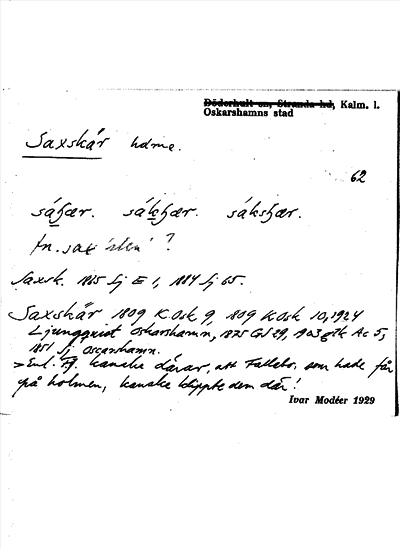 Döderhult sn, Stranda hd, Kalm. l.
Oskarshamns stad
Saxskär holme.
62
sáʃær. sákʃær. sáksʃær.
fn. sax 'sten' ?
Saxsk. 1865 Sj E 1, 1884 Sj 65.
Saxskär 1809 K Osk 9, 1809 K Osk 10, 1924
Ljungqvist Oskarshamn, 1875 GS 29, 1903 gzk Ac 5,
1851 Sj Oscarshamn.
> Enl. Fg. kanske därav, att Fallebo, som hade får
på holmen, kanske klippte dem där!
Ivar Modéer 1929